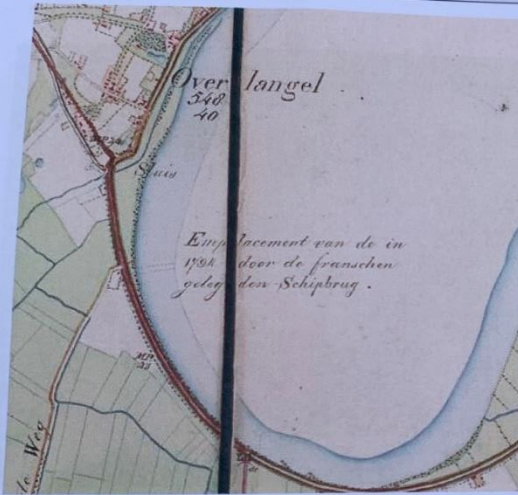 Over langel
548
40
Sluis
Emplacement van de in
1794 door de franschen
gelegden Schipbrug.
de Weg